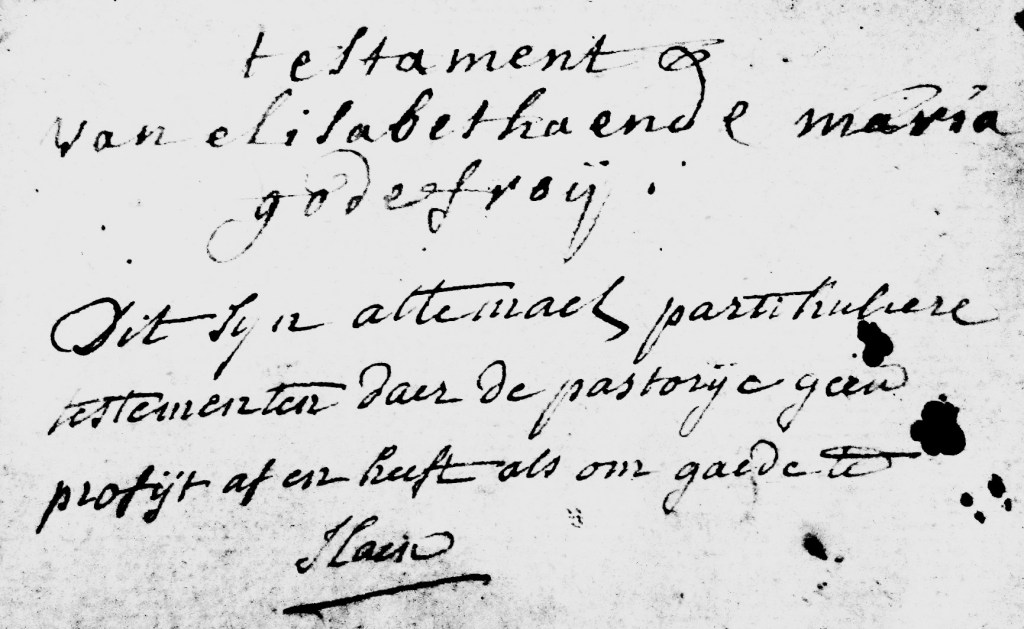 testament
van elisabetha ende maria
godefroij.
Dit sijn altemael partikuliere
testementen daer de pastorije geen
profijt af en heeft als om gaede te
slaen